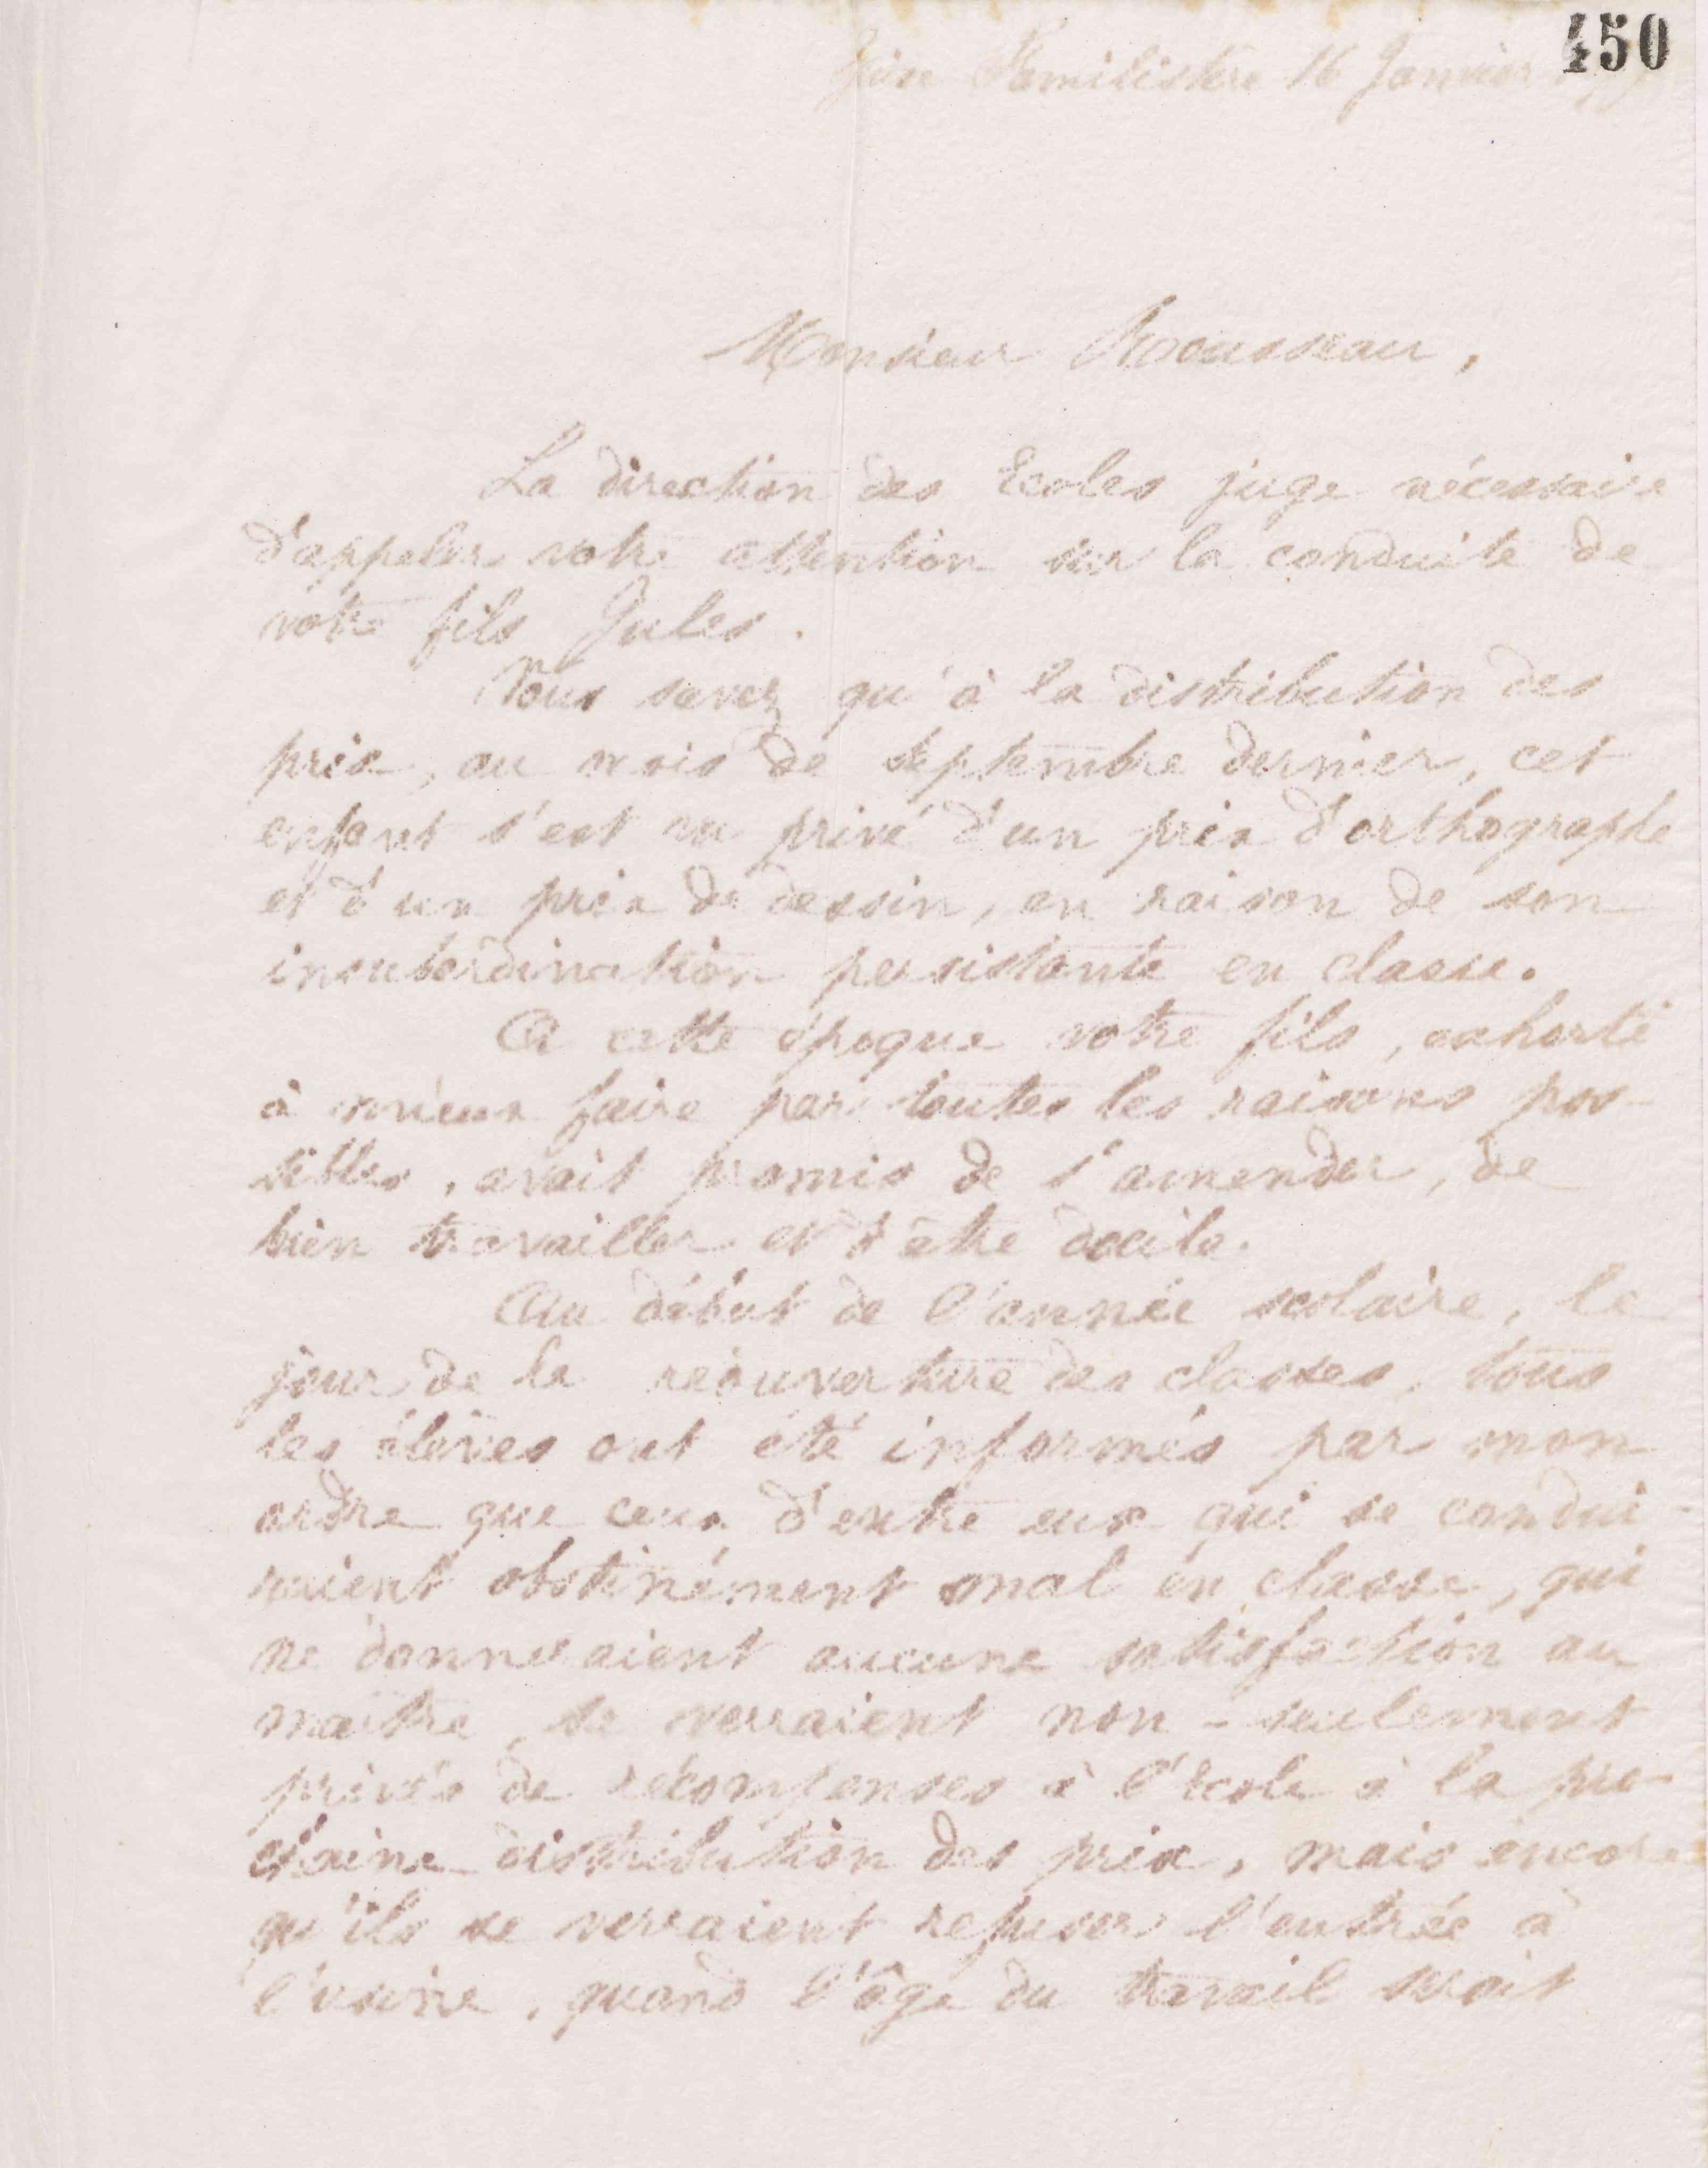 450
Guise Familistère 16 Janvier
Monsieur Rousseau,
La direction des Ecoles juge nécessaire
d'appeler votre attention sur la conduite de
votre fils Jules.
Vous savez qu'à la distribution des
prix, au mois de septembre dernier, cet
enfant s'est vu privé d'un prix d'orthographe
et d'un prix de dessin, en raison de son
insubordination persistante en classe.
A cette époque votre fils, exhorté
à mieux faire par toutes les raisons pos-
sibles, avait promis de s'amender, de
bien travailler et d'être docile.
Au début de l'année scolaire, le
jour de la réouverture des classes, tous
les élèves ont été informés par mon
ordre que ceux d'entre eux qui se condui-
raient obstinément mal en classe, qui
ne donneraient aucune satisfaction au
maître, se verraient non-seulement
privés de récompenses à l'Ecole à la pro-
chaine distribution des prix, mais encore
qu'ils se verraient refuser l'entrée à
l'usine, quand l'âge du travail serait